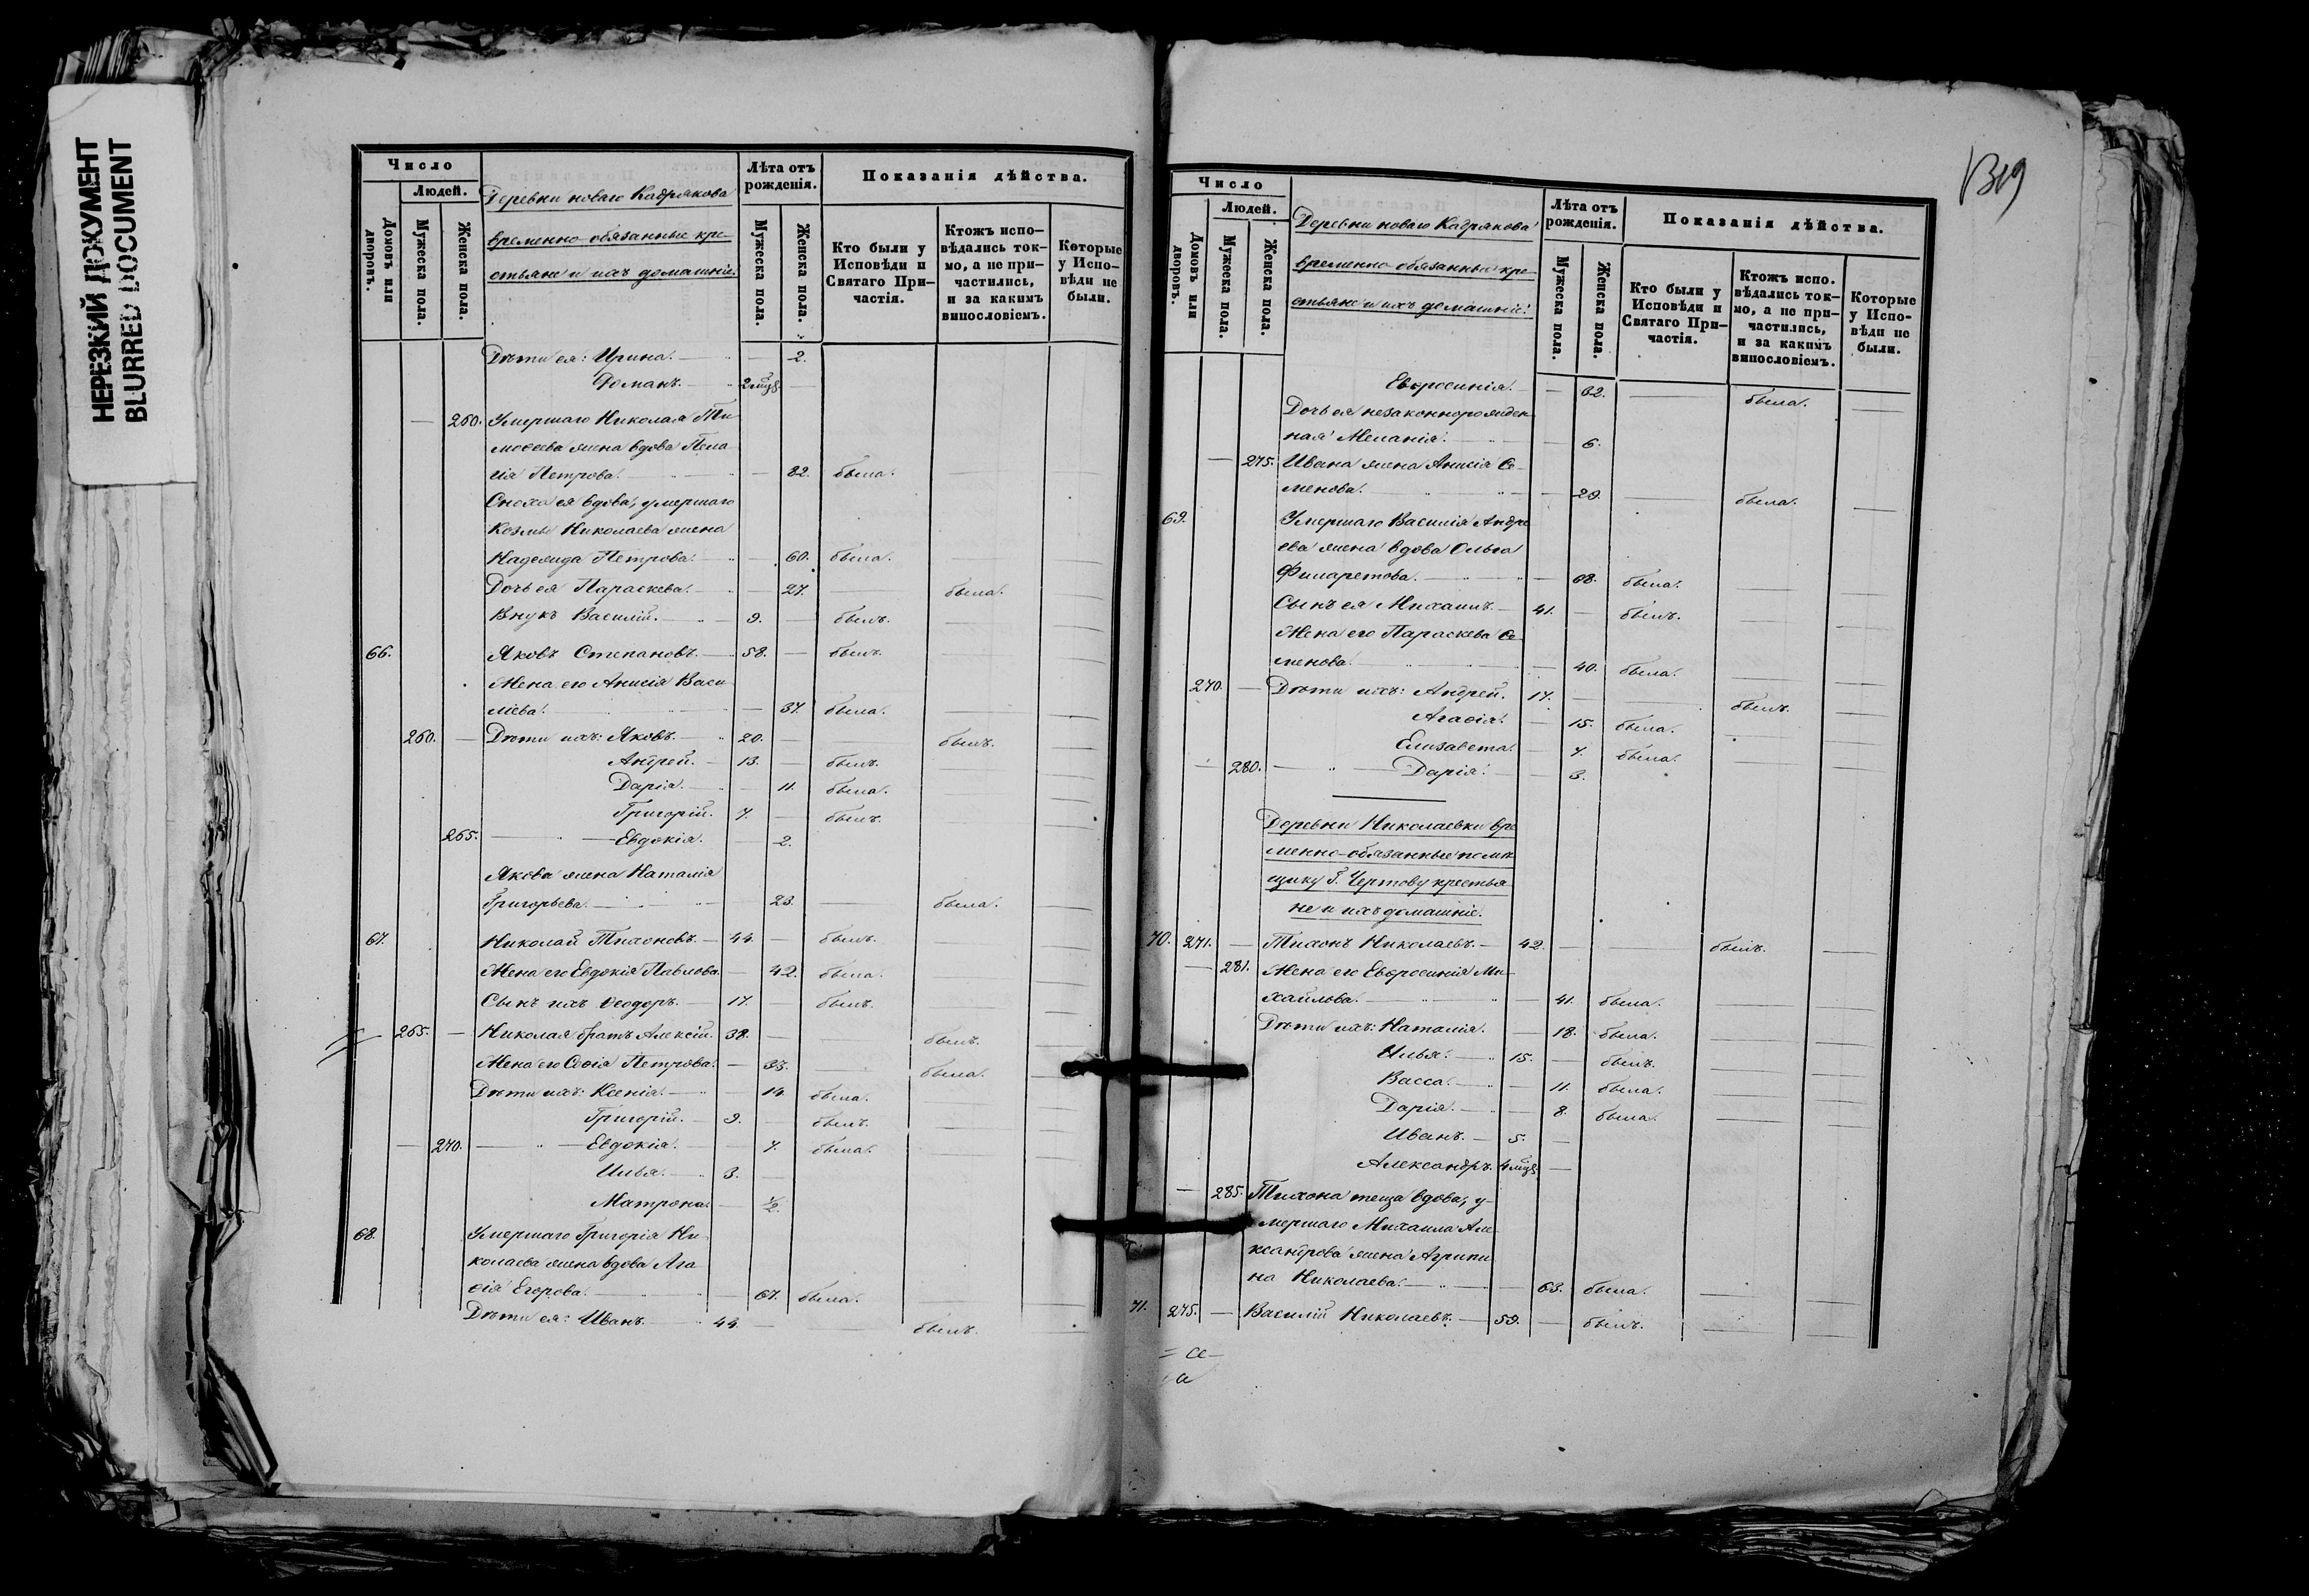 НЕРЕЗКИЙ ДОКУМЕНТ
BLURRED DOCUMENT
Число
Людей.
Домовъ или дворовъ.
Мужеска пола.
Женска пола.
Деревни новаго Кадрякова
временно-обязанные кре-
стьяне и ихъ домашніе.
Лѣта отъ рожденія.
Мужеска пола.
Женска пола.
Показанія дѣйства.
Кто были у Исповѣди и Святаго При-частія.
Ктожъ испо-вѣдались ток-мо, а не при-частились, и за какимъ винословіемъ.
Которые у Испо-вѣди не были.
Дѣти ея: Ирина. — 2.
Романъ. 2 мцъ —
— 260. Умершаго Николая Ти-
моѳеева жена вдова Пела-
гія Петрова. — 82. была.
Сноха ея вдова, умершаго
Козмы Николаева жена
Надежда Петрова. — 60. была.
Дочь ея Параскева. — 27. — была.
Внукъ Василій. 9. — былъ.
66. Яковъ Степановъ. 58. — былъ.
Жена его Анисія Васи-
ліева. — 37. была.
260. — Дѣти ихъ: Яковъ. 20. — былъ.
Андрей. 13. — былъ.
Дарія. — 11. была.
Григорій. 7. — былъ.
265. — Евдокія. — 2.
Якова жена Наталія
Григорьева. 23. — была.
67. Николай Тихоновъ. 44. — былъ.
Жена его Евдокія Павлова. — 42. была.
Сынъ ихъ Ѳеодоръ. 17. — былъ.
265. — Николая братъ Алексій. 38. — былъ.
Жена его Софія Петрова. — 33. — была.
Дѣти ихъ: Ксенія. — 14. была.
Григорій. 9. — былъ.
— 270. — Евдокія. — 7. была.
Илья. 3. —
Матрона. — 1/2.
68. Умершаго Григорія Ни-
колаева жена вдова Ага-
ѳія Егорова. — 67. была.
Дѣти ея: Иванъ. 44. — былъ.
Число
Людей.
Домовъ или дворовъ.
Мужеска пола.
Женска пола.
Деревни новаго Кадрякова
временно-обязанные кре-
стьяне и ихъ домашніе.
Лѣта отъ рожденія.
Мужеска пола.
Женска пола.
Показанія дѣйства.
Кто были у Исповѣди и Святаго При-частія.
Ктожъ испо-вѣдались ток-мо, а не при-частились, и за какимъ винословіемъ.
Которые у Испо-вѣди не были.
Евфросинія. — 32. — была.
Дочь ея незаконнорожден-
ная Меланія. — 6.
— 275. Ивана жена Анисія Се-
менова. — 29. — была.
69. Умершаго Василія Андре
ева жена вдова Ольга
Филаретова. — 68. была.
Сынъ ея Михаилъ. 41. — былъ.
Жена его Параскева Се-
менова. — 40. была.
270. — Дѣти ихъ: Андрей. 17. — былъ.
Агаѳія. — 15. была.
Елизавета. — 7. была.
— 280. — Дарія. — 3.
Деревни Николаевки вре
менно-обязанные помѣ
щику Г. Чертову крестья
не и ихъ домашніе.
70. 271. — Тихонъ Николаевъ. 42. — былъ.
— 281. Жена его Евфросинія Ми-
хайлова. — 41. была.
Дѣти ихъ: Наталія. — 18. была.
Илья. 15. — былъ.
Васса. — 11. была.
Дарія. — 8. была.
Иванъ. 5. —
Александръ. 4 мцъ —
— 285. Тихона теща вдова, у-
мершаго Михаила Але-
ксандрова жена Агрипи
на Николаева. — 63. была.
71. 275. — Василій Николаевъ. 59. — былъ.